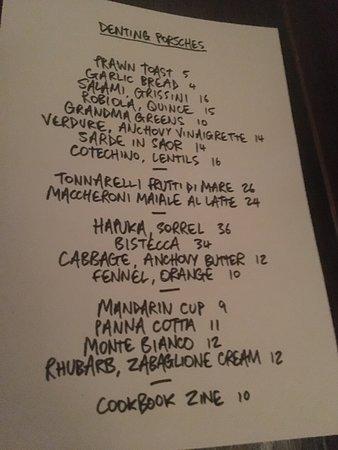 DENTING PORSCHES
PRAWN TOAST 5
GARLIC BREAD 4
SALAMI, GRISSINI 16
ROBIOLA, QUINCE 15
GRANDMA GREENS 10
VERDURE, ANCHOVY VINAIGRETTE 14
SARDE IN SAOR 14
COTECHINO, LENTILS 16
TONNARELLI FRUTTI DI MARE 26
MACCHERONI MAIALE AL LATTE 24
HAPUKA, SORREL 36
BISTECCA 34
CABBAGE, ANCHOVY BUTTER 12
FENNEL, ORANGE 10
MANDARIN CUP 9
PANNA COTTA 11
MONTE BIANCO 12
RHUBARB, ZABAGLIONE CREAM 12
COOKBOOK ZINE 10